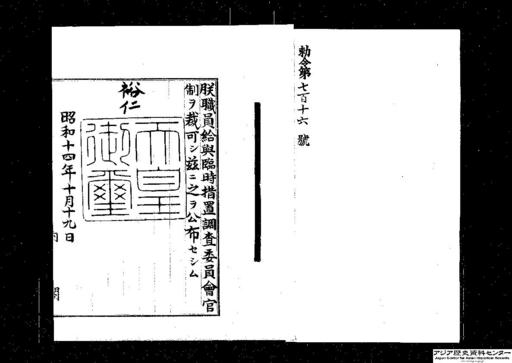 勅令第七百十六號
朕職員給與臨時措置調査委員會官
制ヲ裁可シ茲ニ之ヲ公布セシム
裕仁
天皇
御璽
昭和十四年十月十九日
内
閣
アジア歴史資料センター
Japan Center for Asian Historical Records